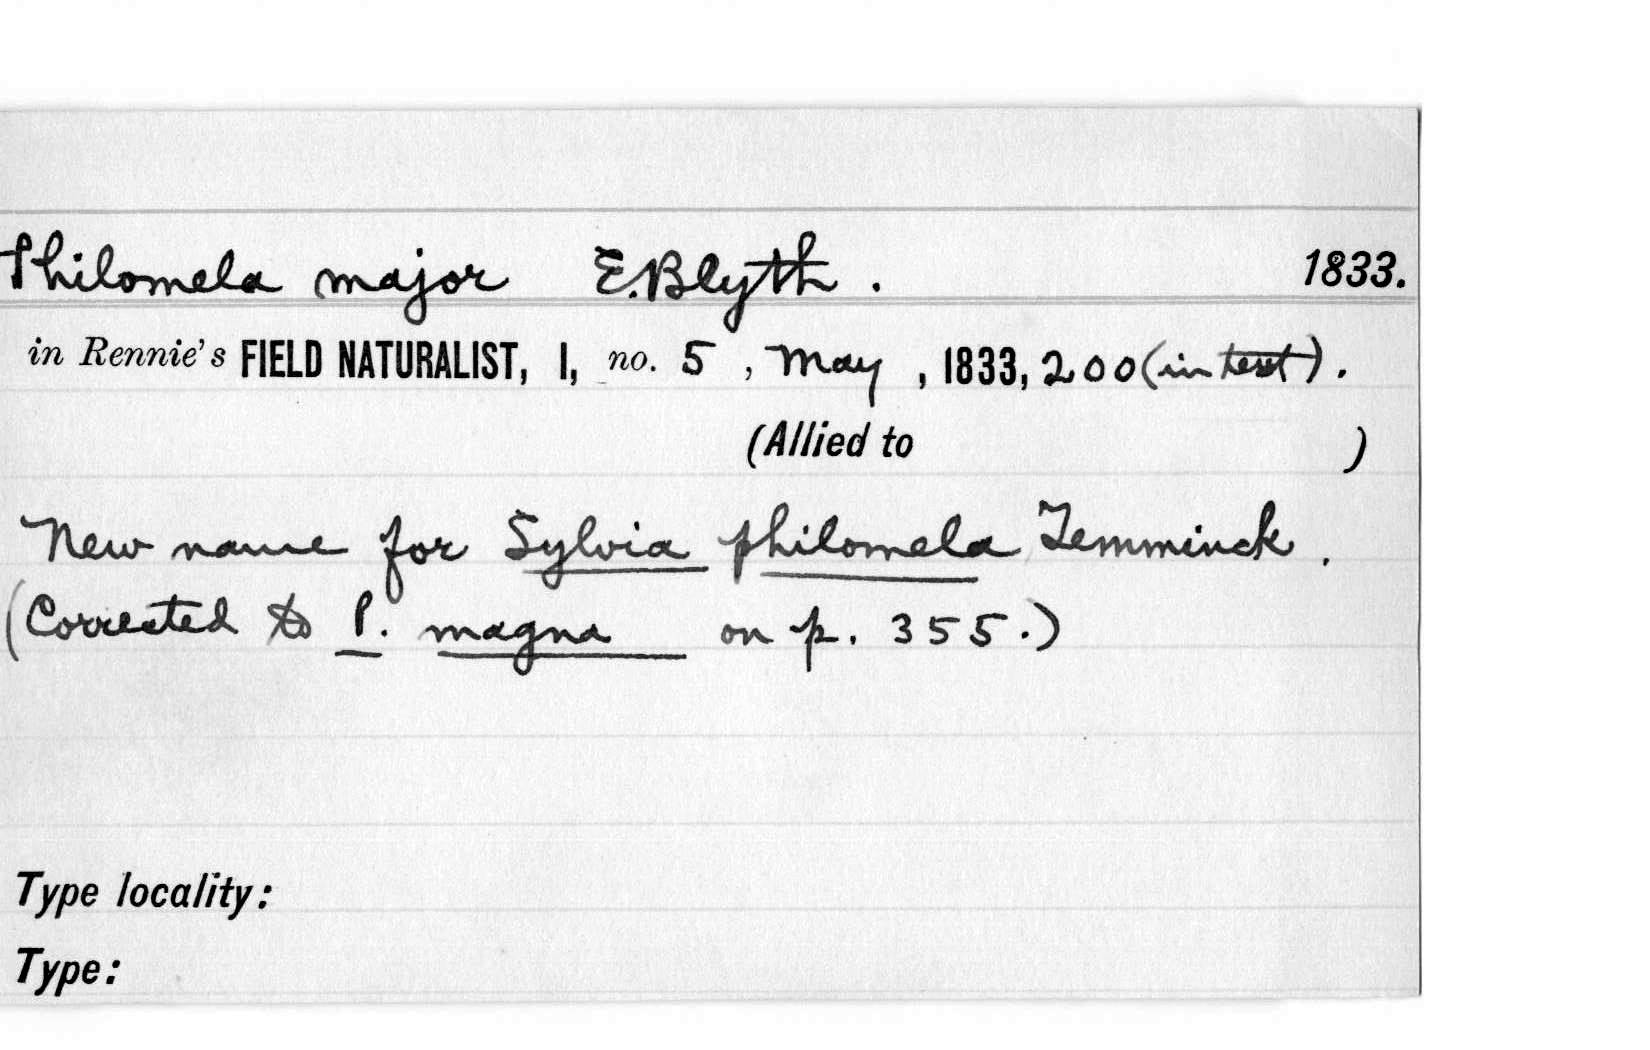 Philomela major E. Blyth. 1833.
in Rennie's FIELD NATURALIST, I, no. 5, May, 1833, 200 (in text).
(Allied to )
New name for Sylvia philomela Temminck.
(Corrected to P. magna on p. 355.)
Type locality:
Type: